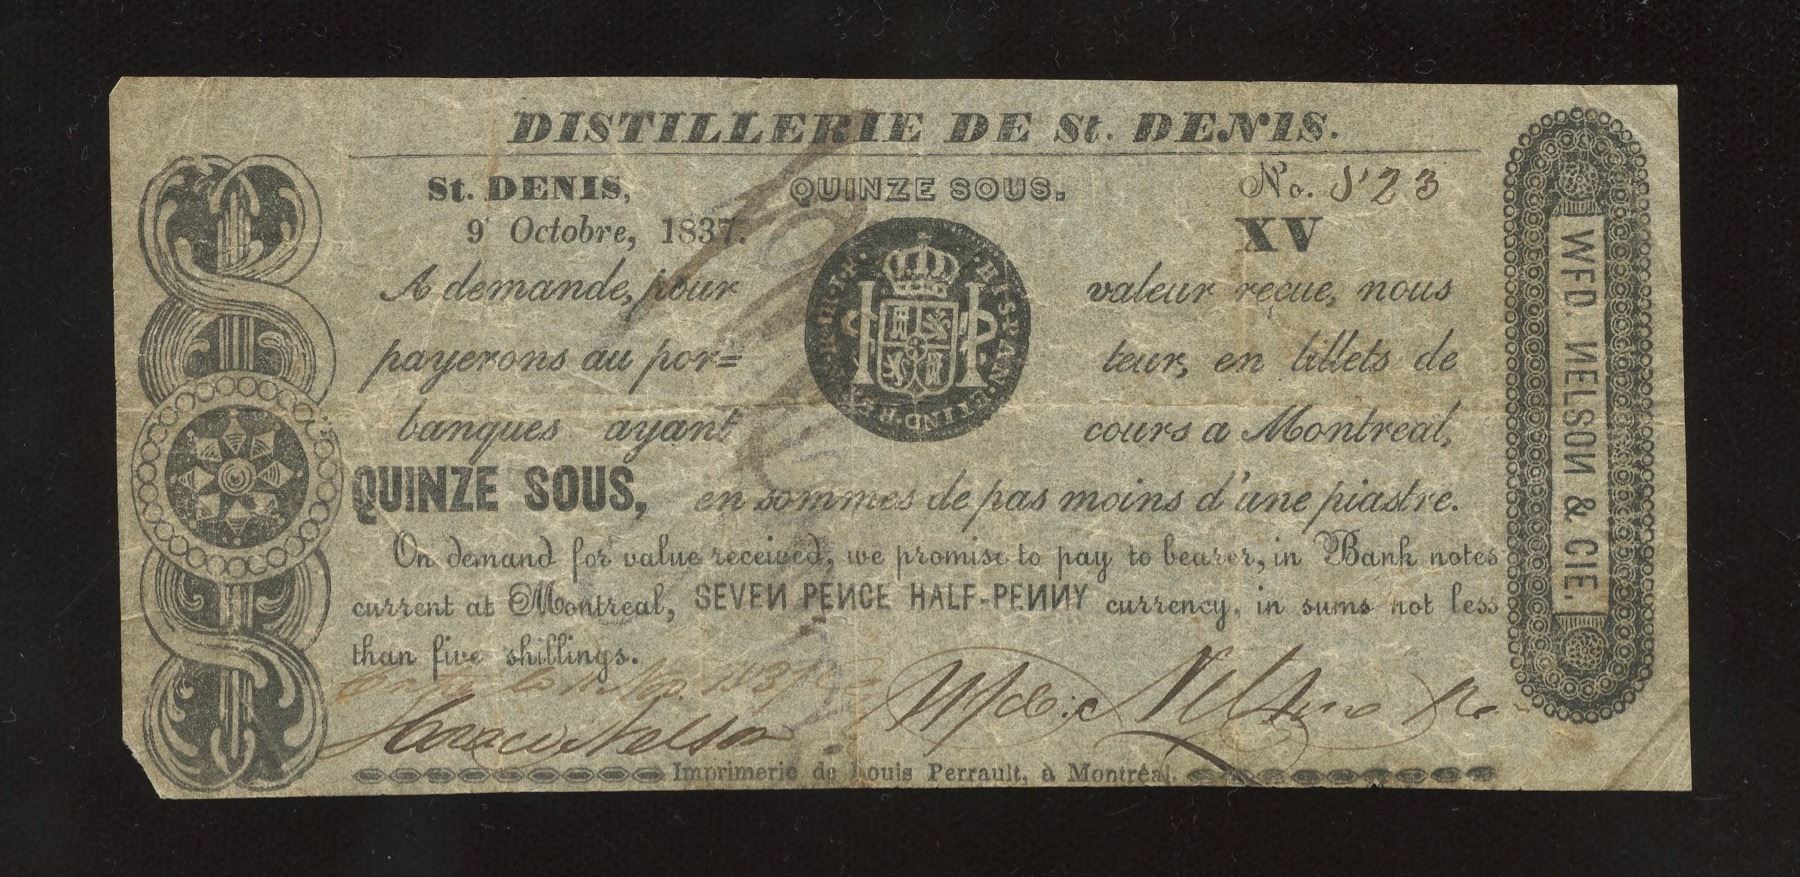 DISTILLERIE DE St. DENIS.
St. DENIS, QUINZE SOUS. No. 823
9 Octobre, 1837. XV
A demande, pour valeur reçue, nous
payerons au por= teur, en billets de
banques ayant cours a Montreal,
QUINZE SOUS, en sommes de pas moins d'une piastre.
On demand for value received, we promise to pay to bearer, in Bank notes
current at Montreal, SEVEN PENCE HALF-PENNY currency, in sums not less
than five shillings.
Horace Nelson Nelson
Imprimerie de Louis Perrault, à Montréal.
WFD. NELSON & CIE.
HISPAN·ET IND·REX